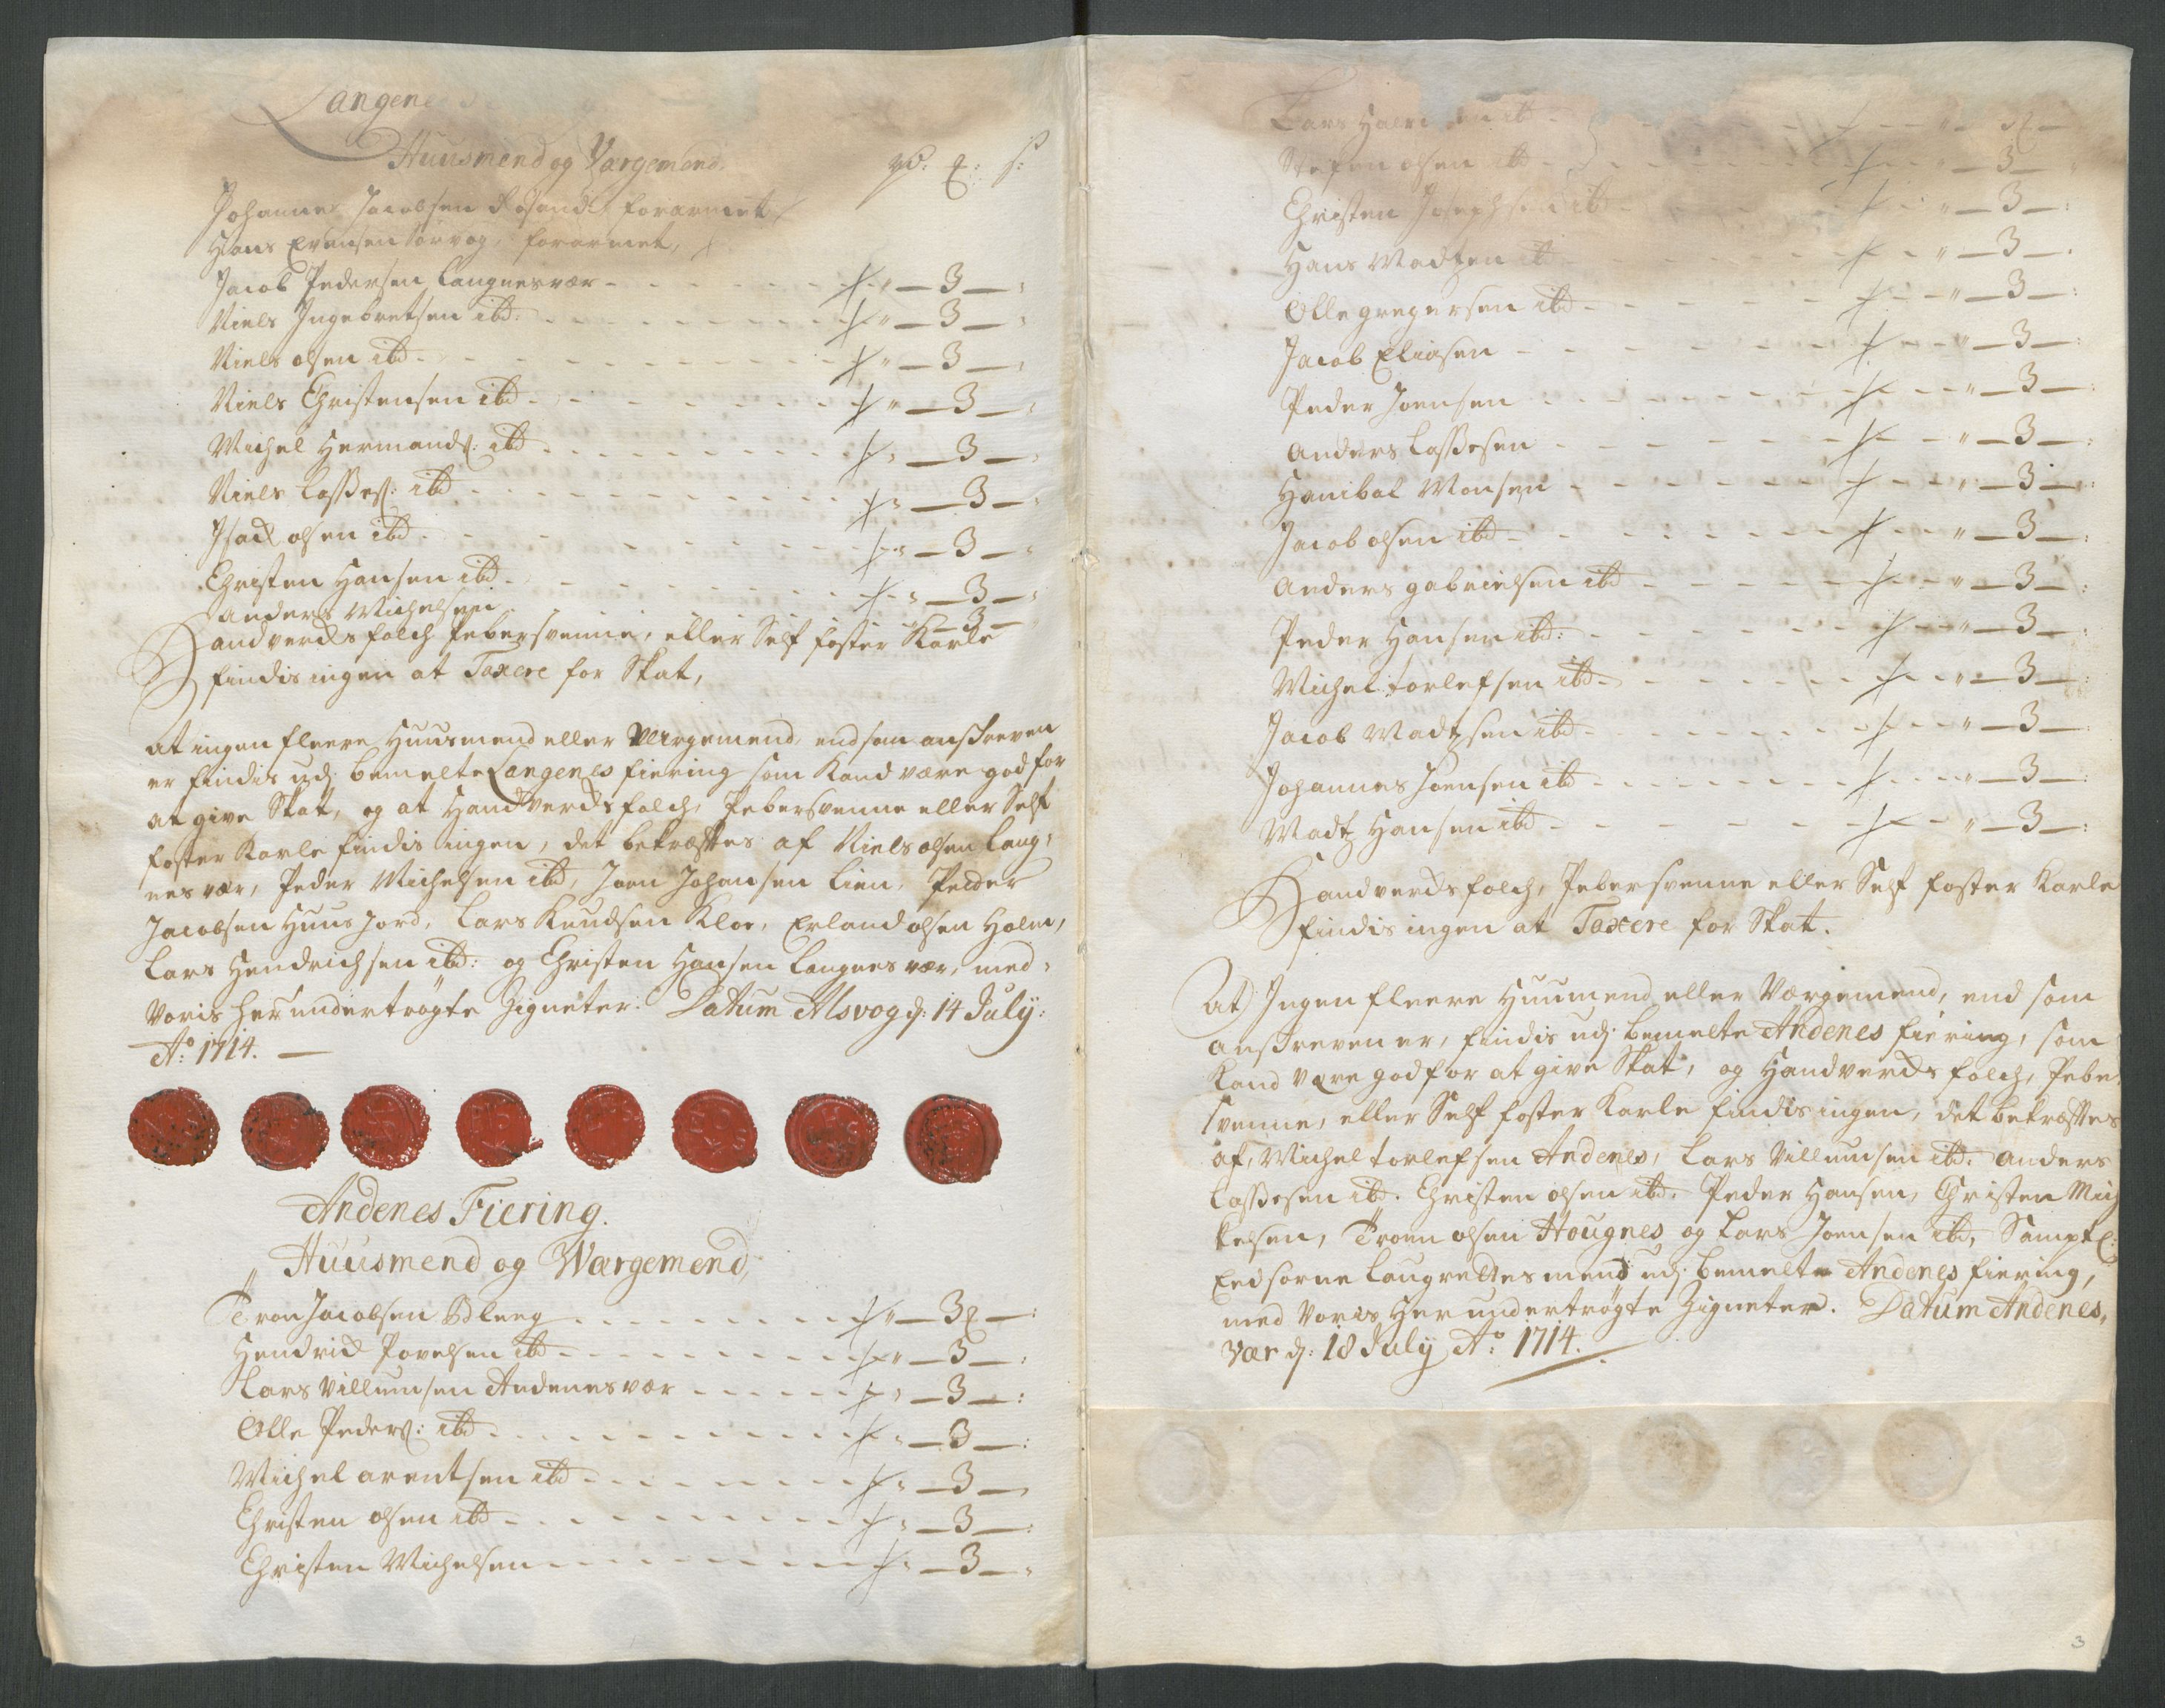 Langenes
Huusmend og Værgemend
Johannes Jacobsen forarmet
Hans Evensen Sørvog, forarmet,
Jacob Pedersen Langnesvær - 3 -
Niels Ingebretsen ibd: - 3 -
Niels olsen ibd - 3 -
Niels Christensen ibd - 3 -
Michel Hermands: ibd - 3 -
Niels Lasses: ibd - 3 -
Isack olsen ibd - 3 -
Christen Hansen ibd - 3 -
Anders Michelsen - 3 -
Handverchsfolch Pebersvenne, eller Self foster Karle
findis ingen at Taxere for Skat,
at ingen fleere Huusmend eller Værgemend end som anskreven
er findis udj bemelte Langenes fiering som Kand være god for
at give Skat, og at Handverchsfolch, Pebersvenne eller Self
foster Karle findis ingen, det bekræfftes af Niels olsen Lang,
nes vær, Peder Michelsen ibd, Joen Johansen Lien, Peder
Jacobsen Huus Jord, Lars Knudsen Kloe, Erland olsen Holm,
Lars Hendrichsen ibd: og Christen Hansen Langnes vær, med
voris her undertrögte Zigneter. Datum Alsvog d: 14 July:
Ao: 1714.
Andenes Fiering.
Huusmend og Wærgemend,
Tron Jacobsen Bleeg - 3 -
Hendrich Povelsen ibd - 3 -
Lars Villumsen Andenesvær - 3 -
Olle Peders: ibd - 3 -
Michel arentsen ibd - 3 -
Christen olsen ibd - 3 -
Christen Michelsen - 3 -
Lars ibd
Stefen olsen ibd - 3 -
Christen Josephsen ibd - 3 -
Hans Madtzen ibd - 3 -
Olle gregersen ibd - 3 -
Jacob Eliasen - 3 -
Peder Joensen - 3 -
Anders Lassesen - 3 -
Hanibal Monsen - 3 -
Jacob olsen ibd - 3 -
Anders gabrielsen ibd - 3 -
Peder Hansen ibd: - 3 -
Michel torlefsen ibd - 3 -
Jacob Madtzsen ibd - 3 -
Johannes Joensen ibd - 3 -
Madtz Hansen ibd - 3 -
Handverchsfolch, Pebersvenne eller Self foster Karle
findis ingen at Taxere for Skat.
At Ingen fleere Huumend eller Værgemend, end som
anskreven er, findis udj bemelte Andenes fiering, som
Kand være god for at give Skat, og Handverchs folch, Peber
svenne, eller Self foster Karle findis ingen, det bekræfftes
af, Michel torlefsen Andenes, Lars Villumsen ibd. Anders
Lassesen ibd. Christen olsen ibd, Peder Hansen, Christen Mich
kelsen, Troen olsen Hougnes og Lars Joensen ibd, Samptl:
Eedsorne Laugrettes mend udj bemelte Andenes fiering,
med voris Her undertrögte Zigneter. Datum Andenes,
Vær d: 18 July Ao: 1714.
3